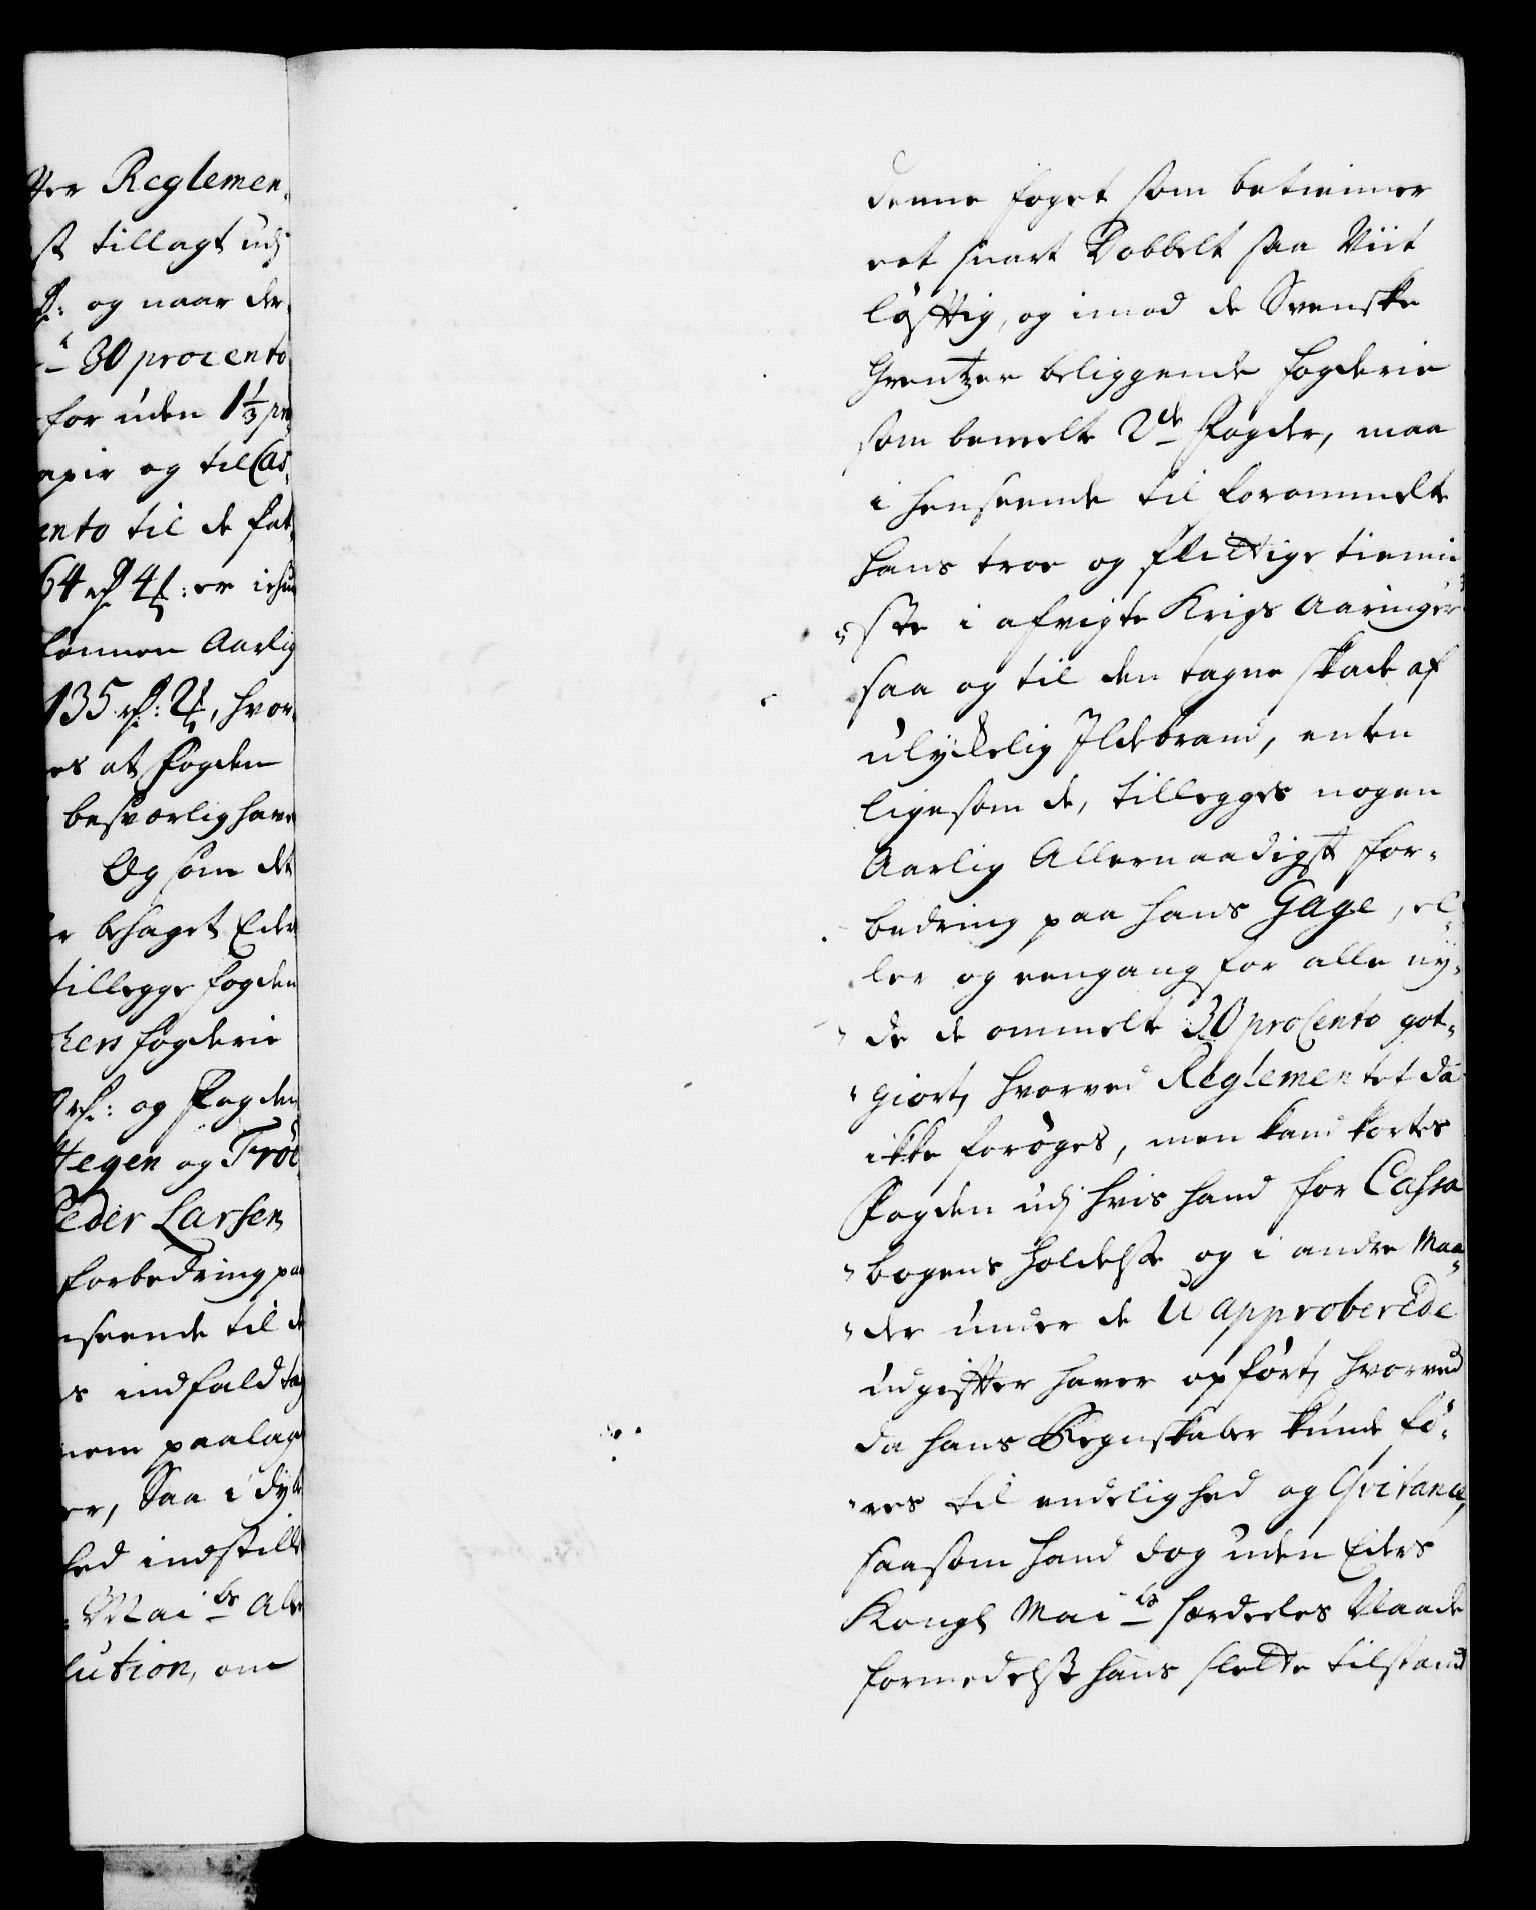 ter Reglemen,
st tillagt udj
og naar der,
30 procento
for uden 1 1/3 pro
apir og til Cas,
ento til de fat,
64 rd 4 s: er
lønnen Aarlig
135 rd: 2 s, hvor,
es at Fogden
besværlig have
Og som det
behaget Eder
tillegge fogden
hers fogderie
rd: og Fogden
Hegen og Frøe,
Peder Larsen
forbedring paa
nseende til de
s indfald
nem paalag
er, Saa i dyb
hed indstille
Maits Aller
lution, om
denne foget som betiener
eet snart Dobbelt saa Viit
løfftig, og imod de Svenske
Grentzer beliggende fogderie
som bemelte 2de Fogder, maa
i henseende til forommelte
hans troe og flittige tienni
"ste i afvigte Krigs Aaringer
saa og til den tagne skade af
ulyckelig Ildebrand, enten
ligesom de, tillegges nogen
Aarlig Allernaadigst for,
bedring paa hans Gage, el,
ler og eengang for alle ny,
"de de ommelte 30 proCento got,
"giort, hvorved Reglementet da
ikke forøges, men kand kortes
Fogden udj hvis hand for Cassa
"bogens holdelse og i andre Maa,
"der under de Uapproberede
udgiffter haver opført, hvorved
da hans Regnskaber kunde fø,
"res til endelighed og Qvitance,
saasom hand dog uden Eders
Kongl Maits særdeeles Naade
formedelst hans slette tilstand